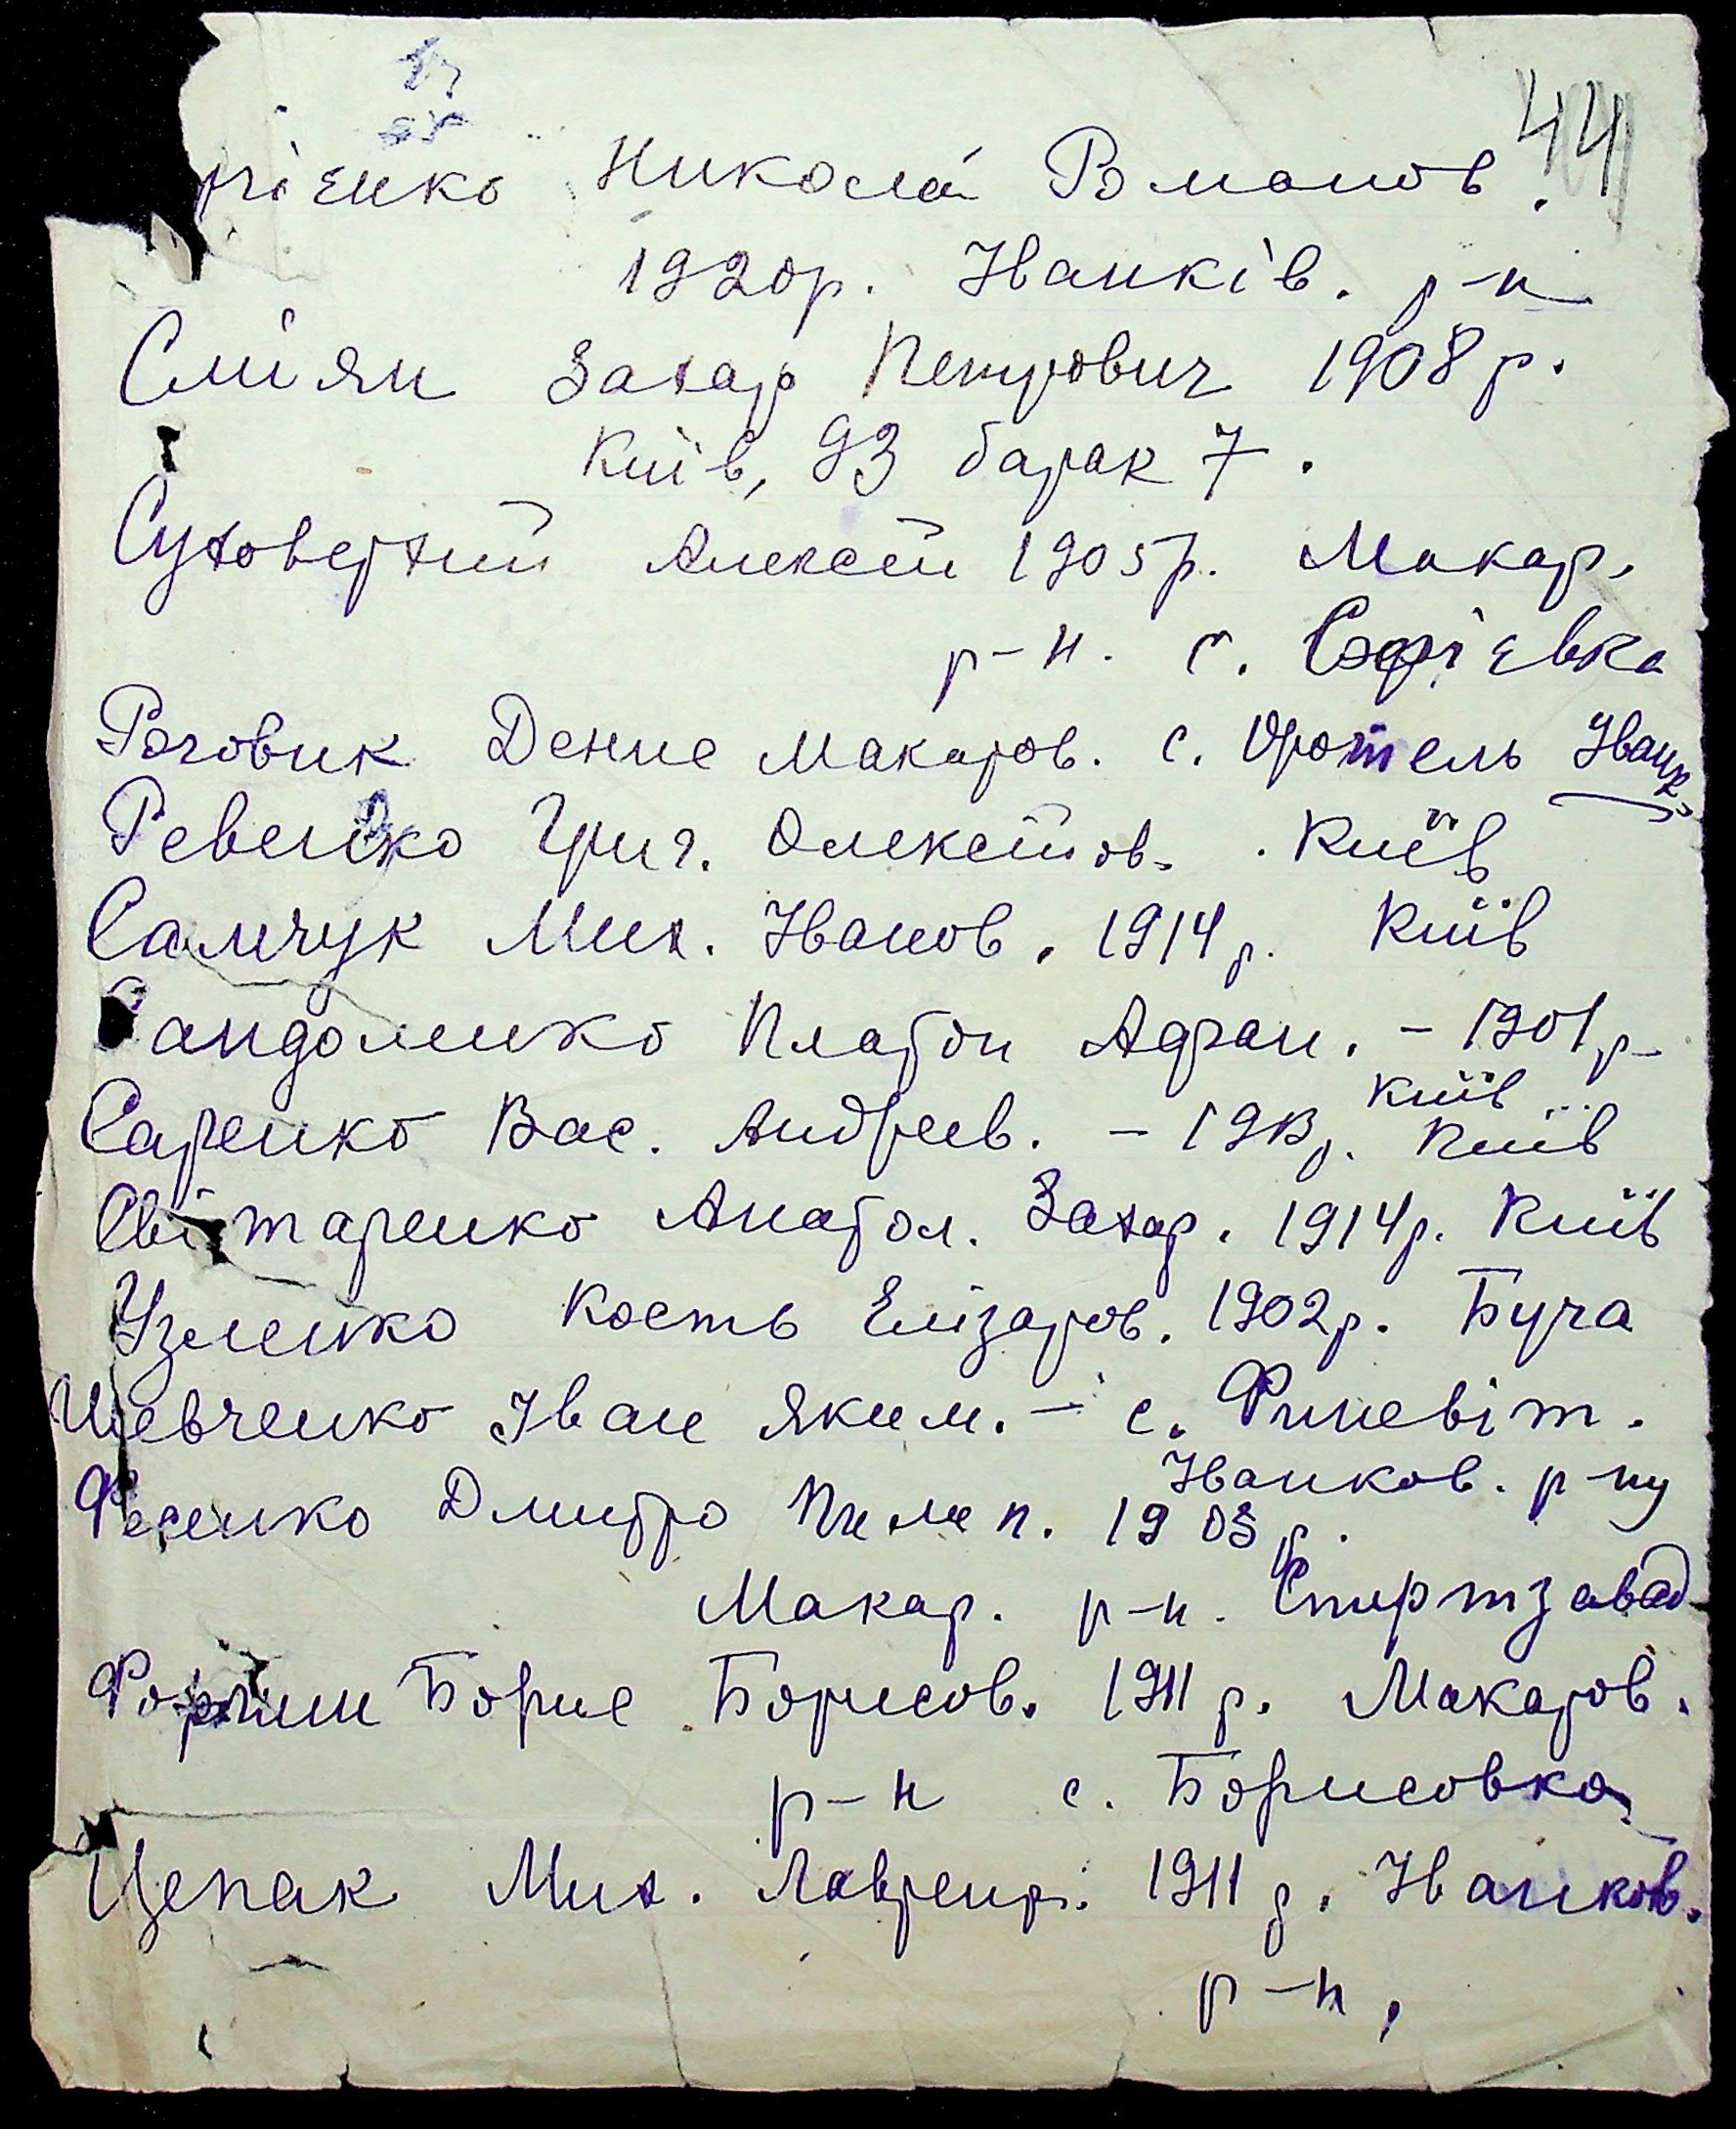 44
гієнко Никола Романов.
1920р. Иванків. р-н
Сміян Захар Петрович 1908р.
Київ, 93 барак 7.
Суховерхий Алексей 1905р. Макар.
р-н. с. Софієвка
Роговик Денис Макаров. с. Оротель Иванк.
Ревенко Григ. Олексійов. Київ
Самчук Мих. Иванов. 1914р. Київ
Сандоленко Платон Адран. - 1901р.
Київ
Саренко Вас. Андреев. - 1913р. Київ
Світаренко Анатол. Захар. 1914р. Київ
Узленко Кость Елізаров. 1902р. Буча
Шевченко Іван Яким. - с. Финевіт.
Иванков. р-ну
Фесенко Дмитро Пилип. 1903р.
Макар. р-н. Спиртзавод
Борис Борисов. 1911р. Макаров.
р-н с. Борисовка
Цепак Мих. 1911р. Иванков.
р-н,